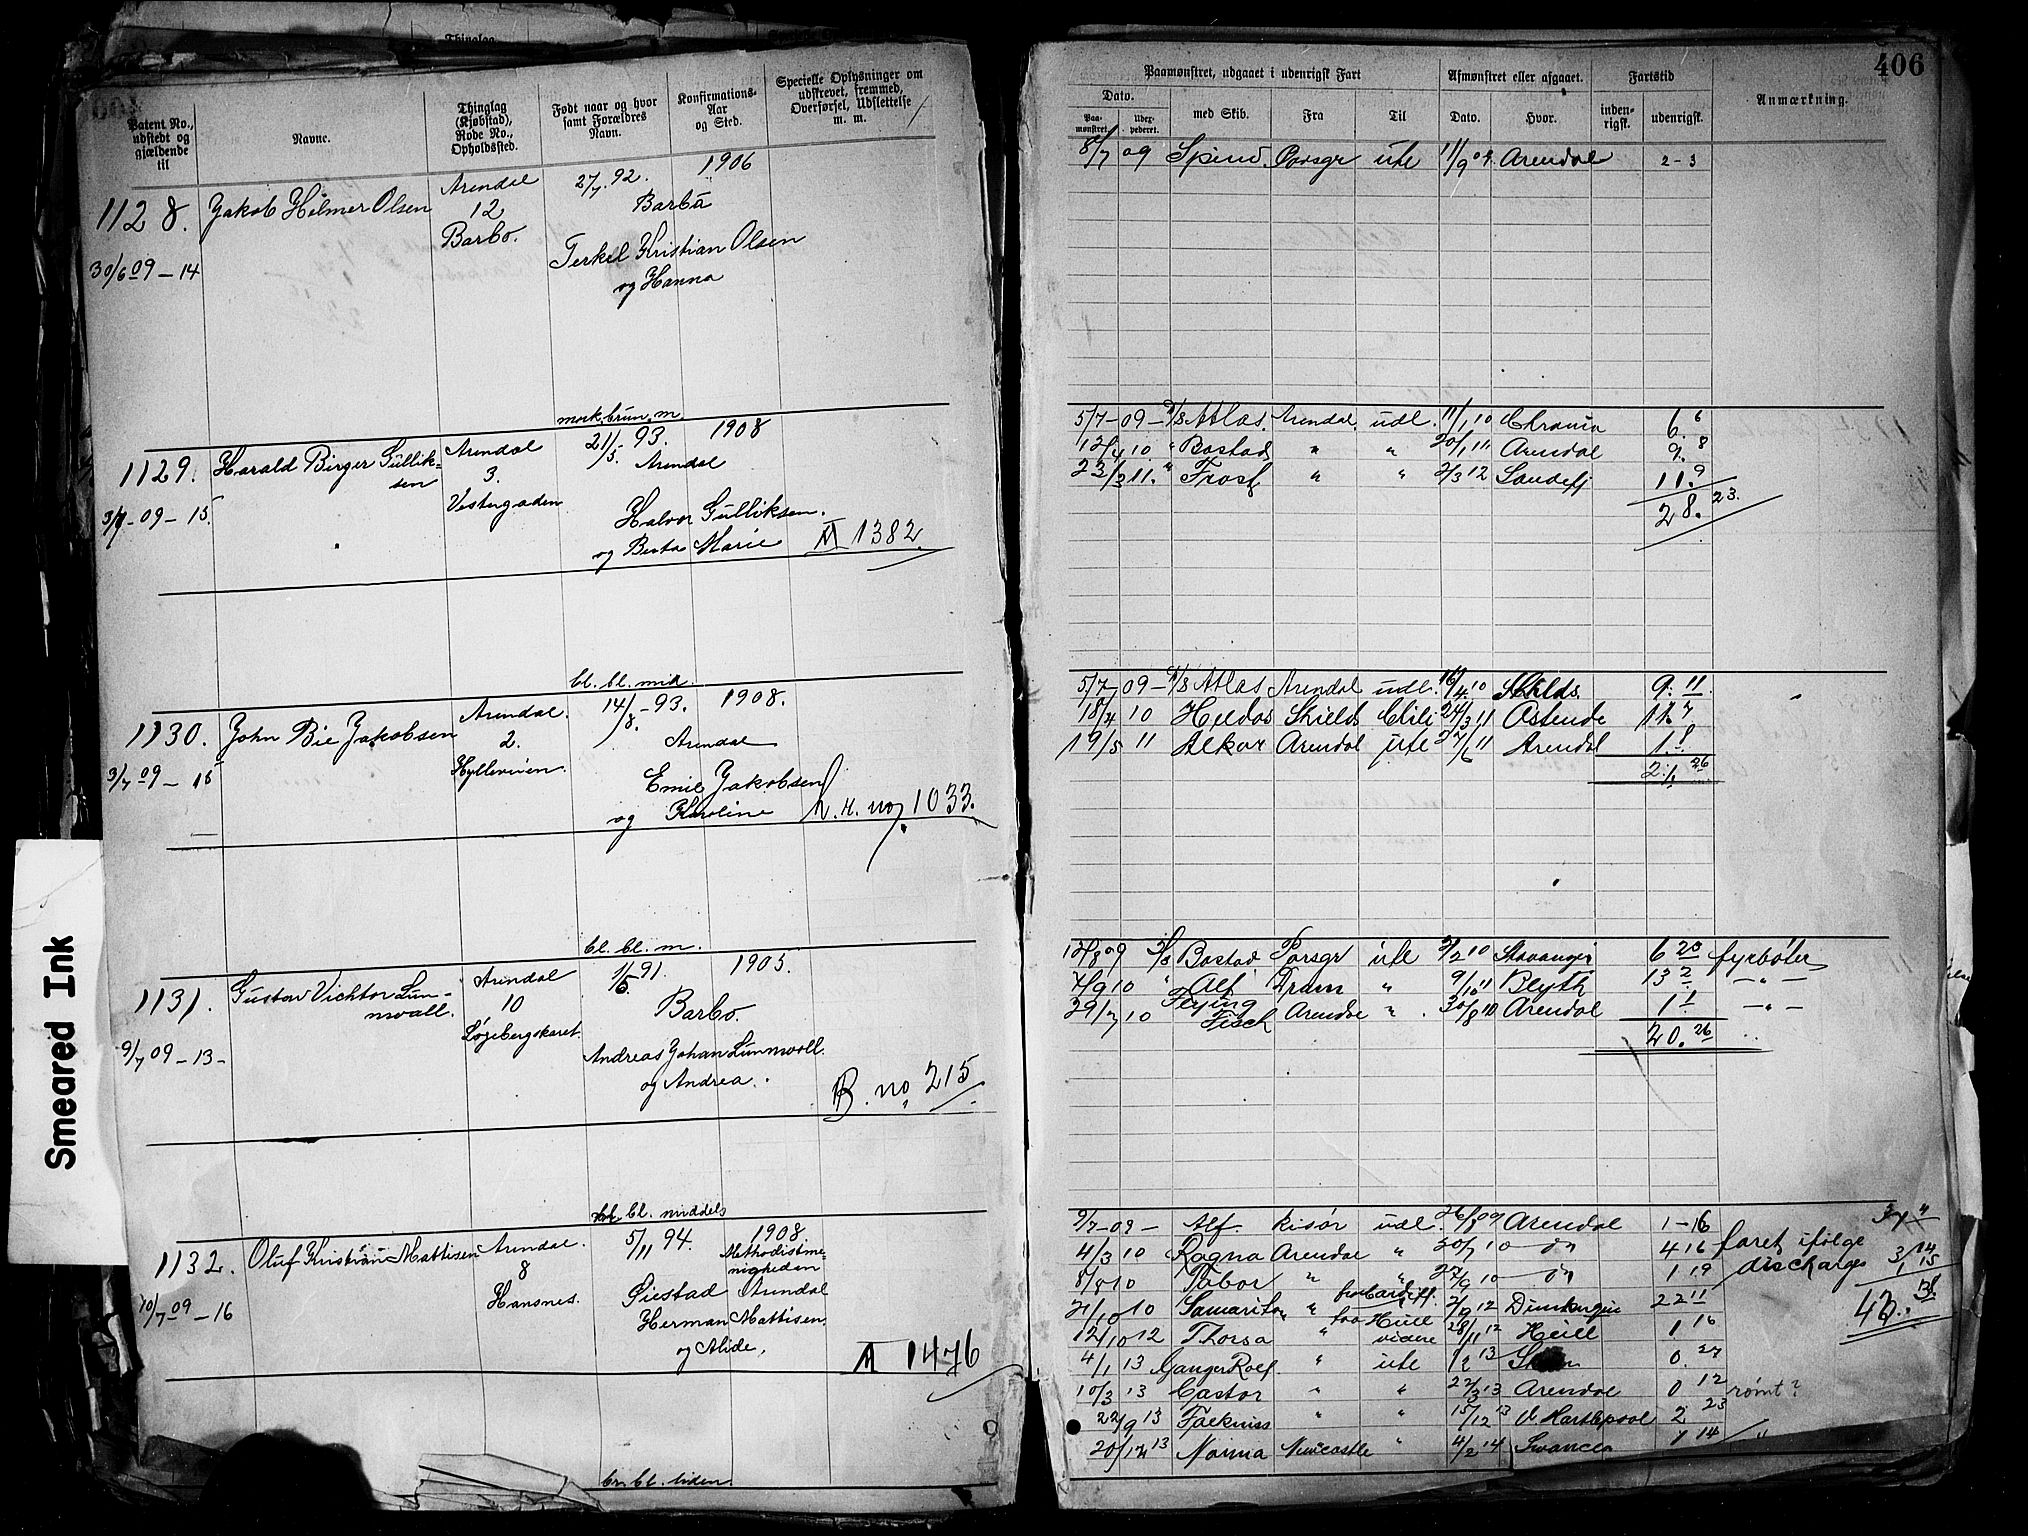 406
Patent No., udstedt og gjældende til
Navne.
Thinglag (Kjøbstad), Rode No., Opholdssted.
Født naar og hvor samt Forældres Navn.
Konfirmations-Aar og Sted.
Specielle Oplysninger om udskrevet, fremmed, Overførsel, Udslettelse m. m.
Paamønstret, udgaaet i udenrigsk Fart
Afmønstret eller afgaaet.
Fartstid
Anmærkning.
Dato.
Paa-mønstret.
Udex-pederet.
med Skib.
Fra
Til
Dato.
Hvor.
inden-rigsk.
udenrigsk.
1128. Jakob Hilmer Olsen Arendal 27/7 92. 1906
12 Barbu
Barbo.
30/6 09 – 14 Terkel Kristian Olsen
og Hanna
8/7 09 Spind. Porsgr ute 11/9 09. Arendal 2-3
mørk, brun, m
1129. Harald Birger Gullik- Arendal 21/5. 93. 1908
sen 3. Arendal
3/7 – 09 – 15. Vestergaden Halvor Gulliksen.
og Berta Marie M 1382.
5/7-09- Atlas. Arendal udl. 11/1 10 Chrania 6. 6
12/4 10 " Bastad " " 20/1 11 Arendal 9. 8
23/3 11. " Frost " " 2/3 12 Sandefj 11. 9
28. 23.
bl. bl. mid.
1130. John Bie Jakobsen Arendal. 14/8 – 93. 1908.
2. Arendal
3/7 09 – 15 Hylleveien. Emil Jakobsen
og Karoline no. 1033.
5/7 09 – Atlas Arendal udl. 16/4 10 Shilds 9. 11.
18/4 10 Heldos Shields Chili 24/3 11 Ostende 11. 7
19/5 11 Alkor Arendal ute 27/6 11 Arendal 1. 8
26
bl. bl. m.
1131. Gustav Vichtor Lun- Arendal 1/5 91. 1905.
nvall. 10 Barbo.
9/7 09 – 13 – Løgebergskaret. Andreas Johan Lunnvoll.
og Andrea. B. no. 215
12/8 09 Bastad Porsgr ute 2/2 10 Stavanger 6 20 fyrbøter
7/9 10 " Alf Dram " 9/10 11 Blyth 13 2 – " –
29/7 10 Flying Fisch Arendal " 30/8 10 Arendal 1 1 – " –
20. 26
bl. middels
1132. Oluf Kristian Mattisen Arendal. 5/11 94. 1908
8 Methodistme-
nigheden
10/7 09 – 16 Hansnes. Siestad Arendal
Herman Mattisen
og Alide, M 1476
9/7-09 – Alf. Risør udl. 26/8 09 Arendal 1-16
4/3 10 Ragna Arendal " 30/7 10 – do 4 16 faret ifølge
8/8 10 Tabor " " 27/9 10 – do 1 19 discharges
7/10 10 Samaritan " fra Cardiff. 7/9 12 22 11
12/10 12 Thorsa " fra Hull videre 28/11 12 Hull 1 16
4/1 13 Ganger Rolf " ute 1/2 13 0. 27
10/3 13 Castor " " 22/3 13 Arendal 0 12 rømt?
22/9 13 Falkniss " " 15/12 13 V. Hartlepool 2 23
20/12 13 Norma Newcastle " 4/2 14 Swansea 1 14
3 14
1 15
br. bl. liden
Smeared Ink